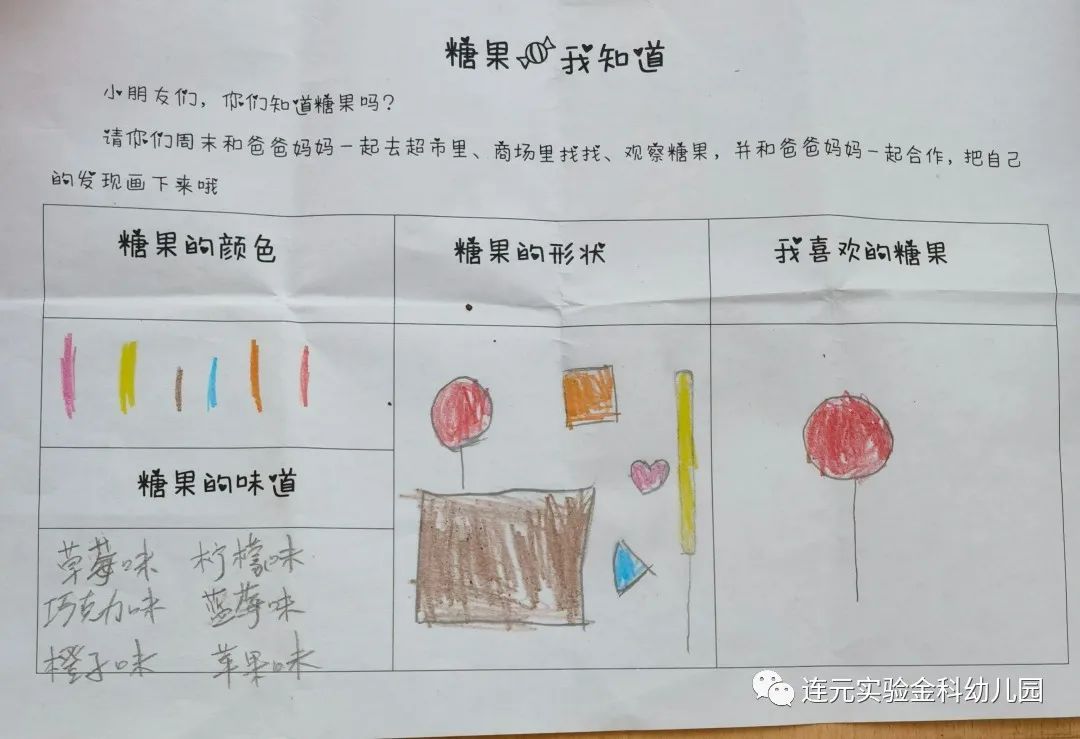 糖果我知道
小朋友们，你们知道糖果吗？
请你们周末和爸爸妈妈一起去超市里、商场里找找、观察糖果，并和爸爸妈妈一起合作，把自己
的发现画下来哦
糖果的颜色
糖果的形状
我喜欢的糖果
糖果的味道
草莓味 柠檬味
巧克力味 蓝莓味
橙子味 苹果味
连元实验金科幼儿园